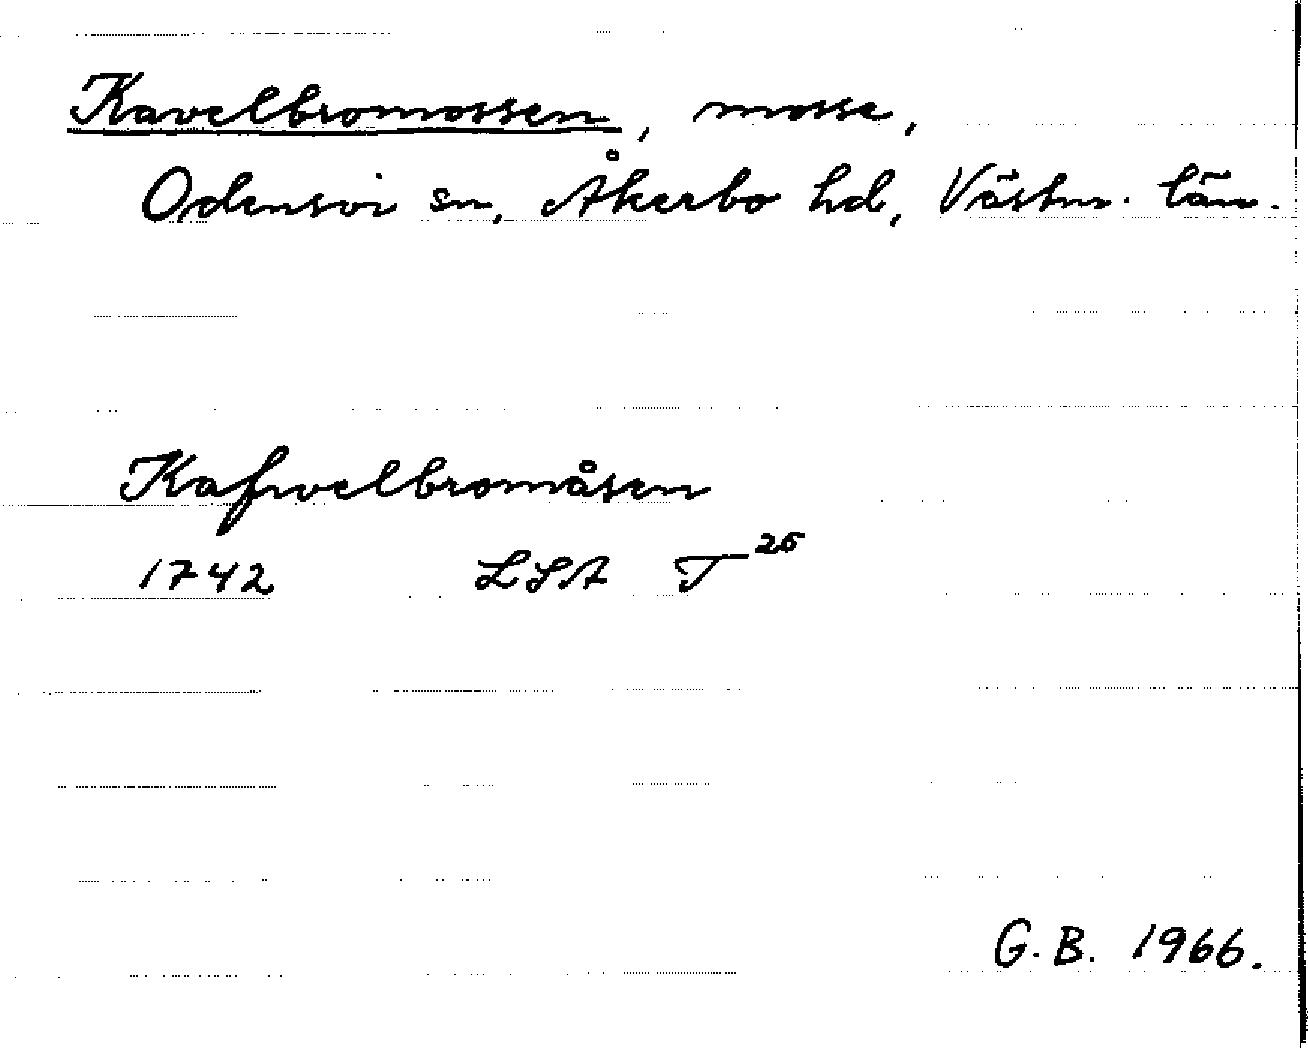 Kavelbromossen, mosse,
Odensvi sn, Åkerbo hd, Västm. län.
Kafwelbromåsen
1742 LSA T²⁶
G.B. 1966.